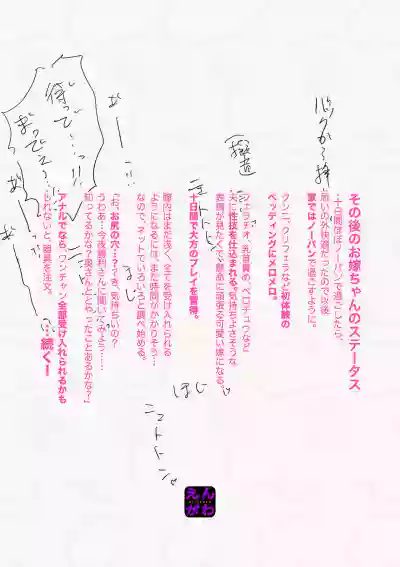 その後のお嫁ちゃんのステータス
…十日間ほぼノーパンで過ごしたら、
思いの外快適だったので以後
家ではノーパンで過ごすように。
クンニ、クリフェラなど初体験の
ペッティングにメロメロ。
フェラチオ、乳首責め、ベロチュウなど
夫に性技を仕込まれる。気持ちよさそうな
表情が見たくて懸命に頑張る可愛い嫁になる。
十日間で大方のプレイを習得。
膣内はまだ浅く、全てを受け入れられる
ようになるには、まだ時間がかかりそう…
なので、ネットでいろいろと調べ始める。
「お、お尻の穴…??き、気持ちいの?
うわあ…今後勝利さんに聞いてみよう……
知ってるかな?奥さんとやったことあるかな?」
アナルでなら、ワンチャン全部受け入れられるかも
しれないと、器具を注文。
…続く!
待って…!!
まってぇ…!
えん
がわ